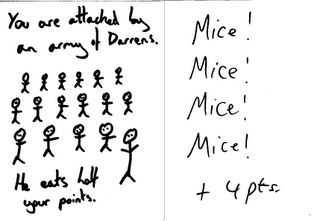 You are attacked by
an army of Darrens.
He eats half
your points.
Mice!
Mice!
Mice!
Mice!
+ 4 pts.